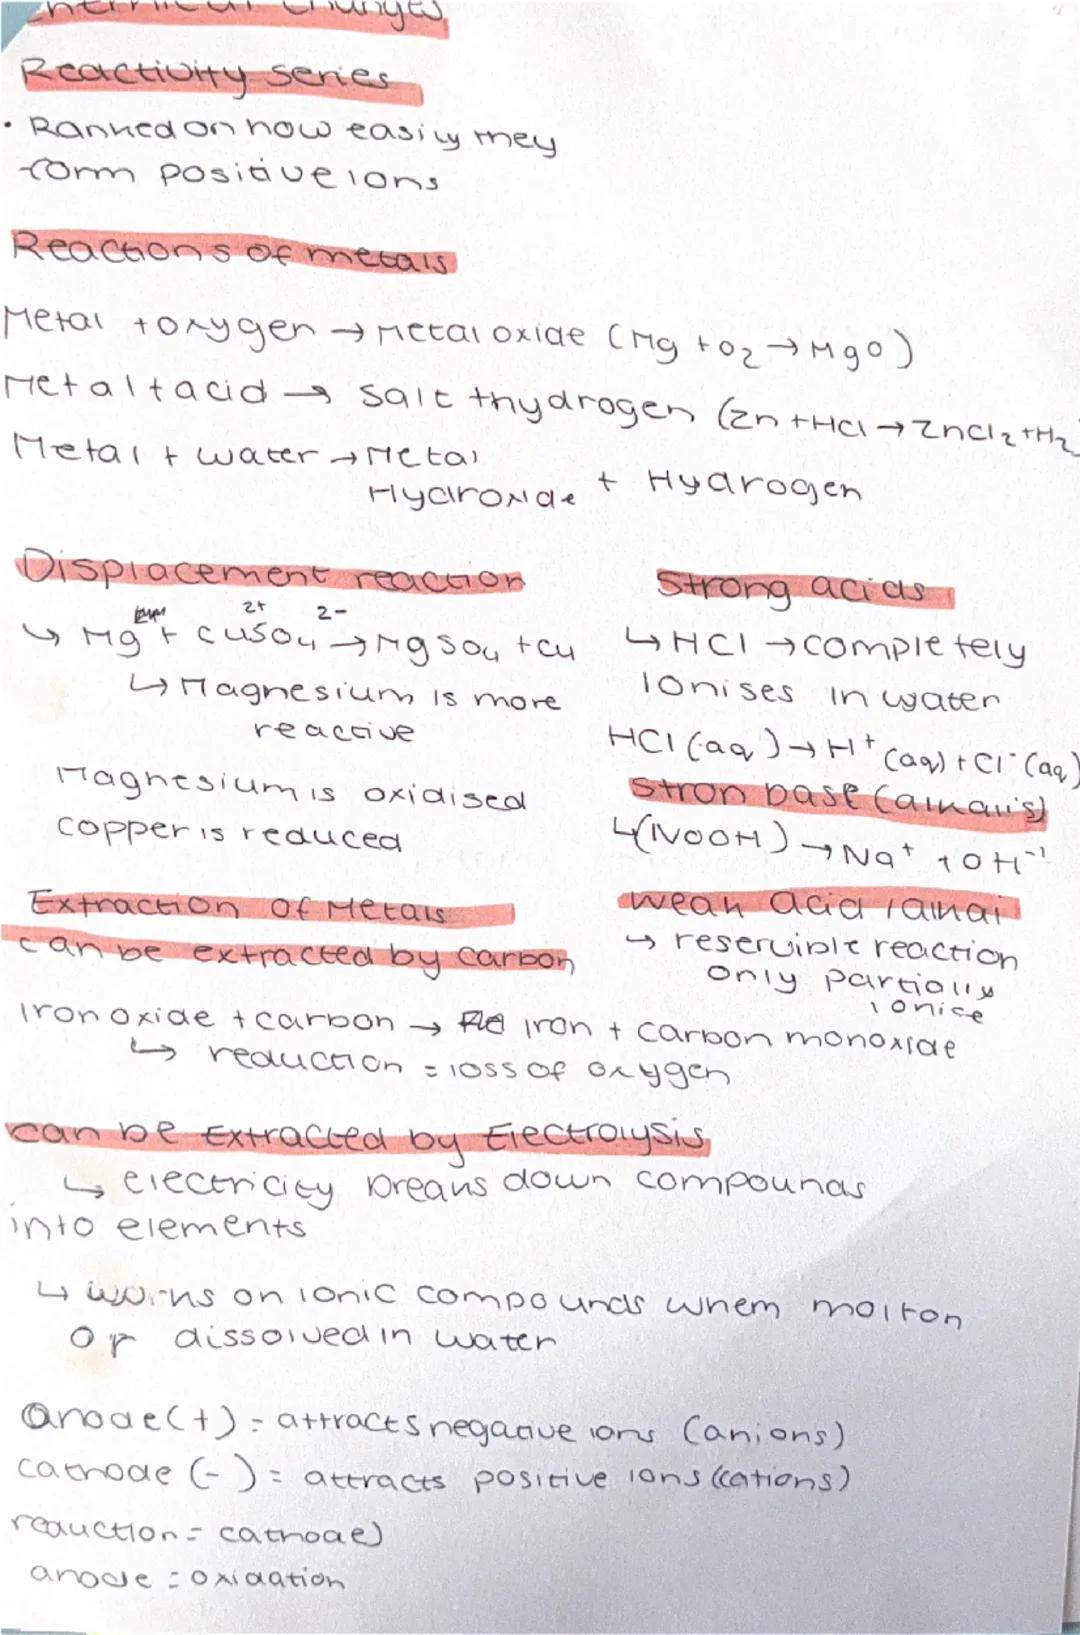 Chemical Changes
Reactivity series
• Ranked on how easily they
form positive ions
Reactions of metals
Metal + oxygen → Metal oxide (Mg + O₂ → MgO)
Metal + acid → salt + hydrogen (Zn + HCl → ZnCl₂ + H₂)
Metal + water → Metal
Hydroxide + Hydrogen
Displacement reaction
2+ 2-
↳ Mg + CuSO₄ → MgSO₄ + Cu
↳ Magnesium is more
reactive
Magnesium is oxidised
copper is reduced
Strong acids
↳ HCl → completely
Ionises in water
HCl (aq) → H⁺ (aq) + Cl⁻ (aq)
Stron base (alkalis)
↳ (NOOH) → Na⁺ + OH⁻¹
weak acid / alkai
→ reservible reaction
only partially
ionise
Extraction of Metals
can be extracted by carbon
Iron oxide + carbon → iron + carbon monoxide
↳ reduction = loss of oxygen
can be Extracted by Electrolysis
↳ electricity breaks down compounds
into elements
↳ works on ionic compounds whem molton
or dissolved in water
anode (+) = attracts negative ions (anions)
cathode (-) = attracts positive ions (cations)
reduction = cathode)
anode = oxidation